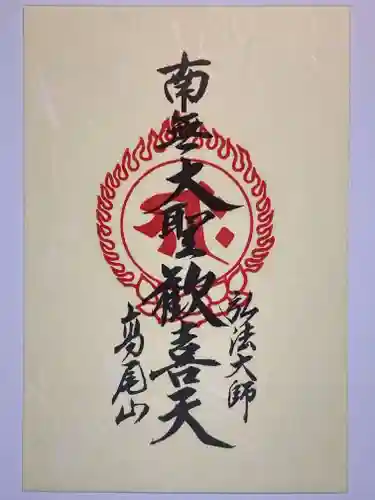 南無大聖歓喜天
弘法大師
高尾山